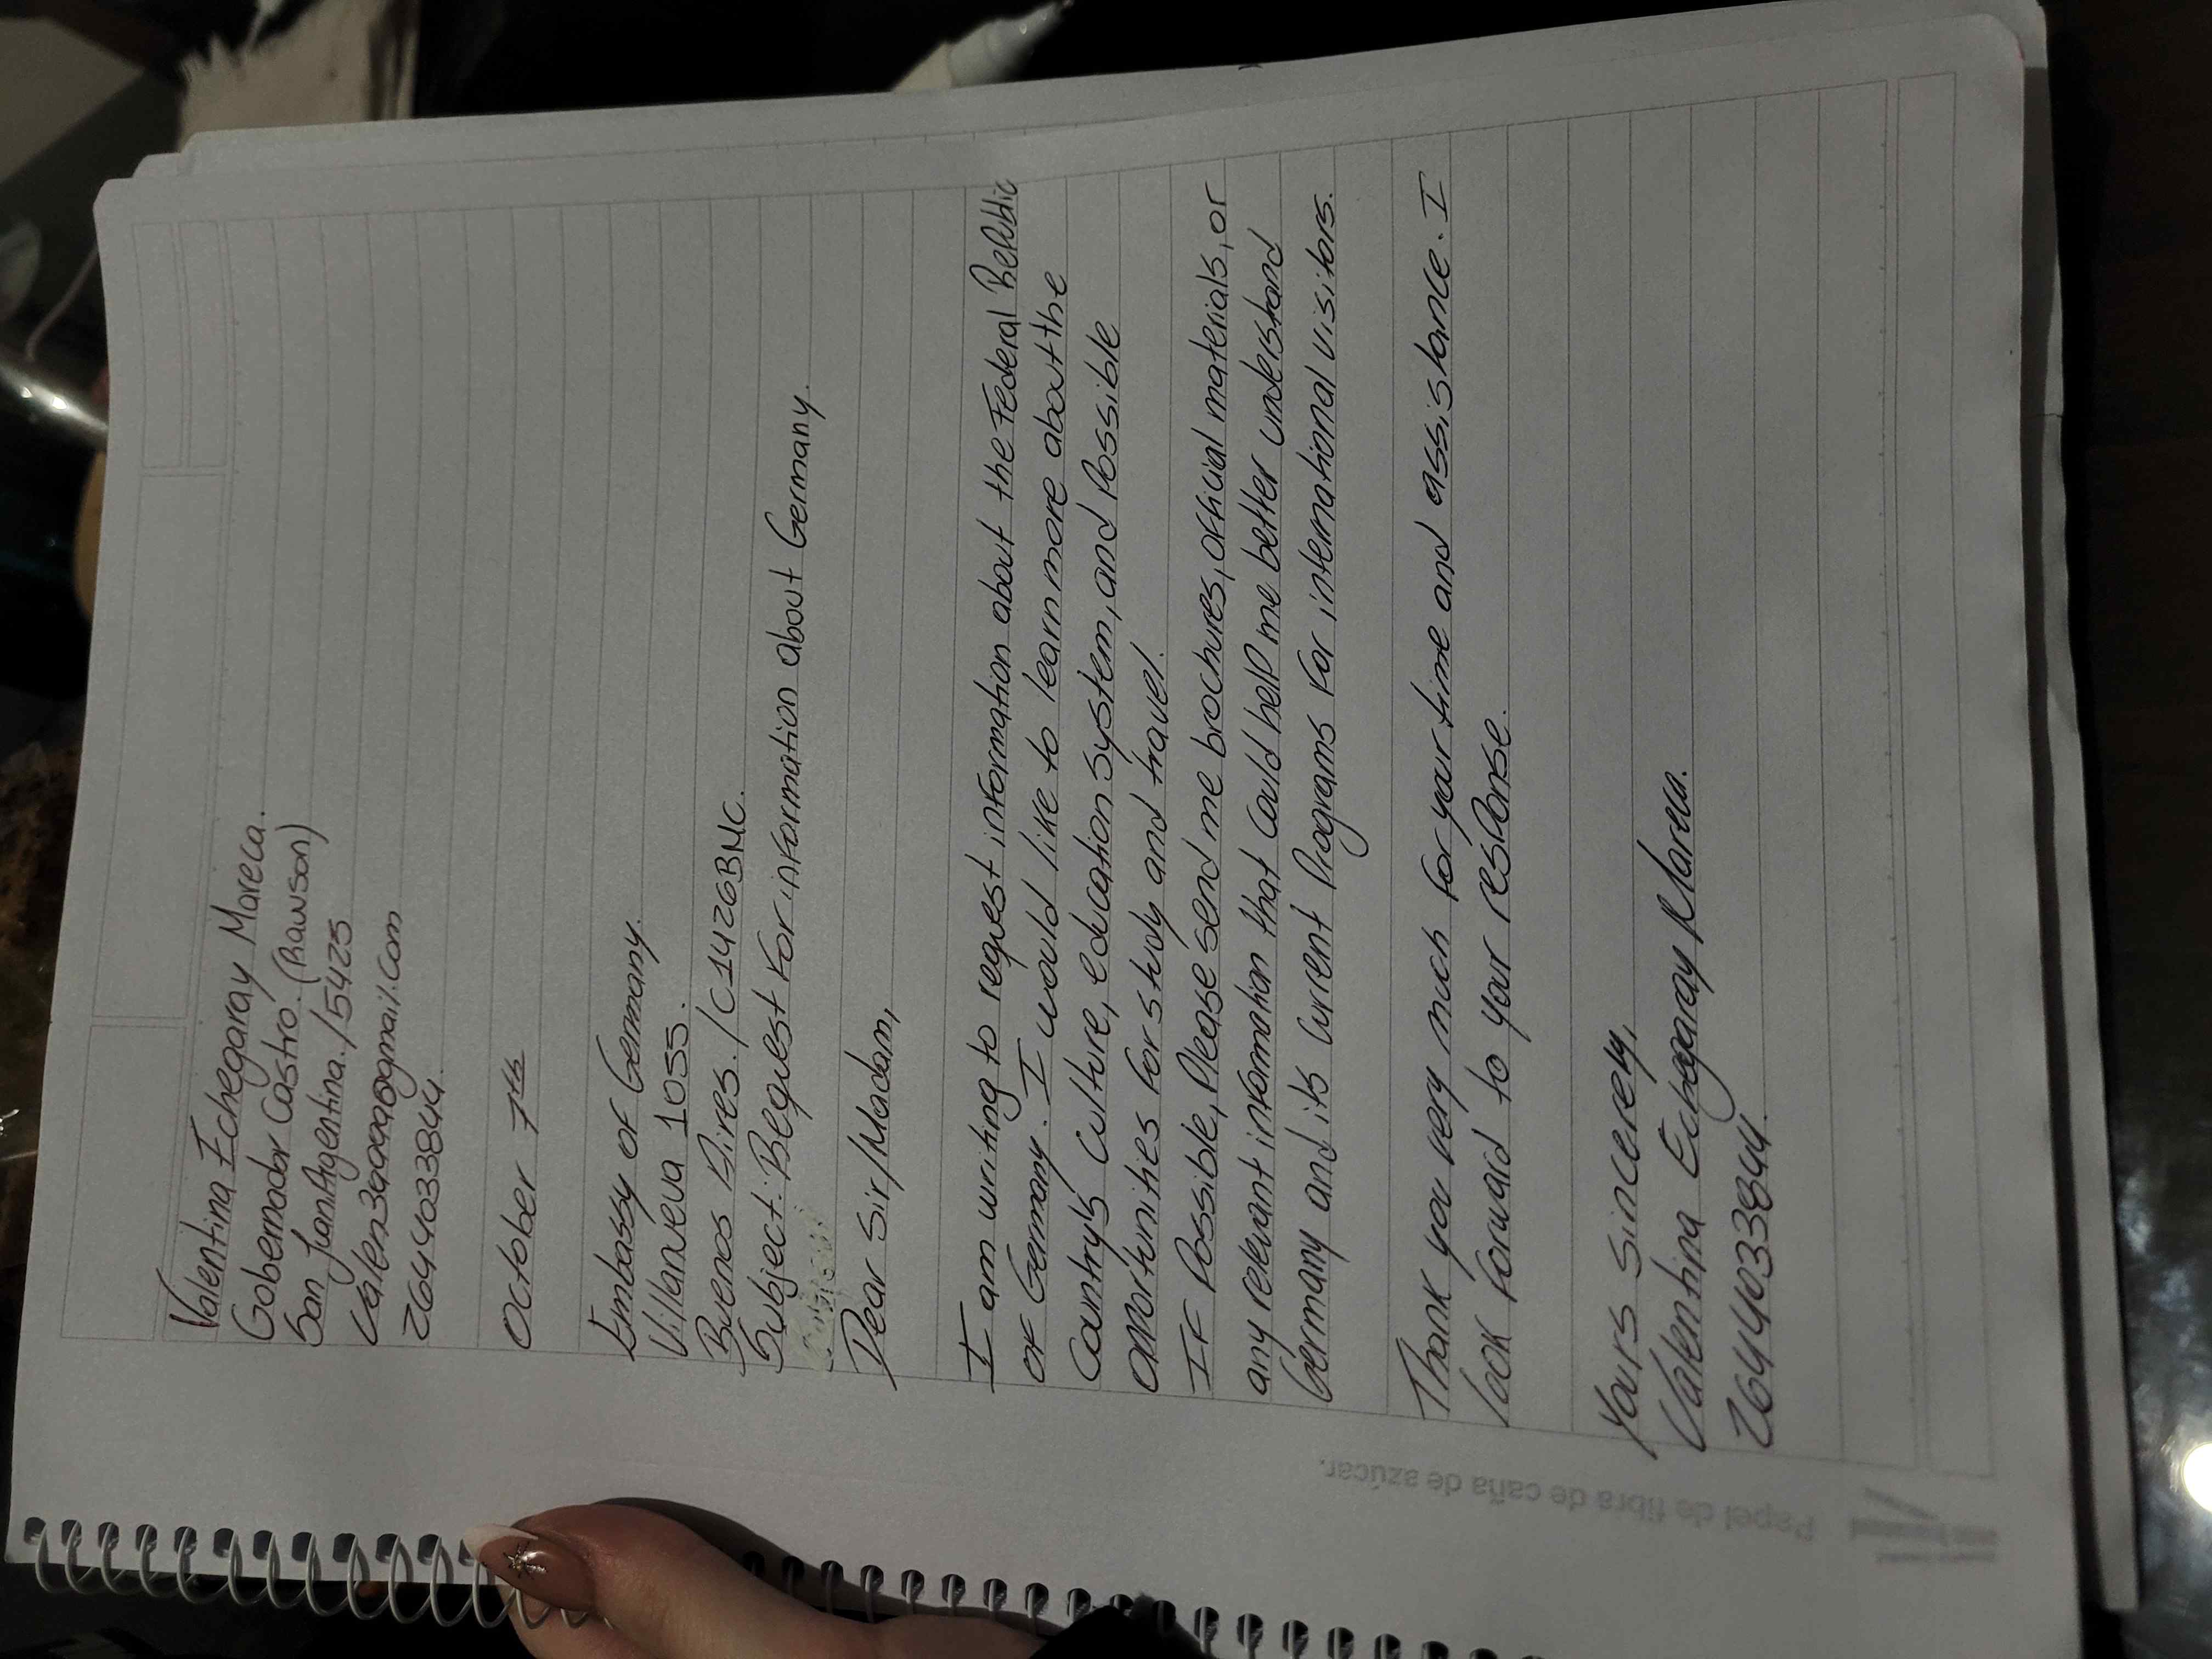 Valentina Echegaray Mareca.
Gobernador Castro. (Rawson)
San Juan, Argentina. / 5425
2644033844.
October 7th
Embassy of Germany.
Villanueva 1055.
Buenos Aires. / C1426BMC.
Subject: Request for information about Germany.
Dear Sir/Madam,
I am writing to request information about the Federal Republic
of Germany. I would like to learn more about the
country's culture, education system, and possible
opportunities for study and travel.
If possible, please send me brochures, official materials, or
any relevant information that could help me better understand
Germany and its current programs for international visitors.
Thank you very much for your time and assistance. I
look forward to your response.
Yours sincerely,
Valentina Echegaray Mareca.
2644033844.
Papel de fibra de caña de azúcar.